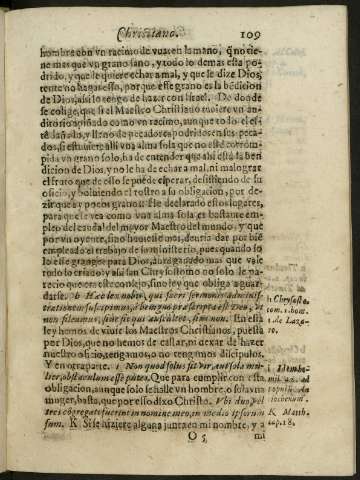 Christiano. 109
hombre con vn racimo de vuas en la mano, q̃ no tie-
ne mas que vn grano sano, y todo lo demas està po-
drido, y que le quiere echar a mal, y que le dize Dios,
tente no hagas esso, porque esse grano es la bendicion
de Dios, assi lo tengo de hazer con Israel. De donde
se colige, que si el Maestro Christiano tuuiere vn au-
ditorio apiñado como vn racimo, aunque todo el es-
tè dañado, y lleno de pecadores podridos en sus peca-
dos, si estuuiere alli vna alma sola que no estè corrom-
pida vn grano solo, ha de entender que ahi està la ben
dicion de Dios, y no le ha de echar a mal, ni malograr
el fruto que de ello se puede esperar, desistiendo de su
oficio, y boluiendo el rostro a su obligacion, por de-
zir que ay pocos granos: He declarado estos lugares,
para que se vea como vna alma sola es bastante em-
pleo del caudal del mayor Maestro del mundo, y que
por vn oyente, sino huuiesse mas, deuria dar por biẽ
empleado el trabajo de su ministerio, pues quando so
lo esse grangee para Dios, aurà ganado mas que vale
todo lo criado: y assi san Chrysostomo no solo le pa-
recio que era este consejo, sino ley que obliga a guar-
darse. h Hæc lex nobis, qui sacri sermonis administ-
rationem suscepimus, à benigno præscripta est Deo, vt
non sileamus, siue sit qui auscultet, siue non. En esta
ley hemos de viuir los Maestros Christianos, puesta
por Dios, que no hemos de cessar, ni dexar de hazer
nuestro oficio, tengamos, o no tengamos dicipulos.
Y en otra parte. i Non quod solus sit vir, aut sola mu-
lier, obstaculum esse putes. Que para cumplir con esta
obligacion, aunque solo se halle vn hombre, o sola vna
muger, basta, que por esso dixo Christo. Vbi duo, vel
tres cõgregati fuerint in nomine meo, in medio ipsorum
sum. K Si se hiziere alguna junta en mi nombre, y a
O 5 mi
h Chrysost.
tom. 1. hom.
1. de Laza-
ro.
K Matth.
cap. 18.